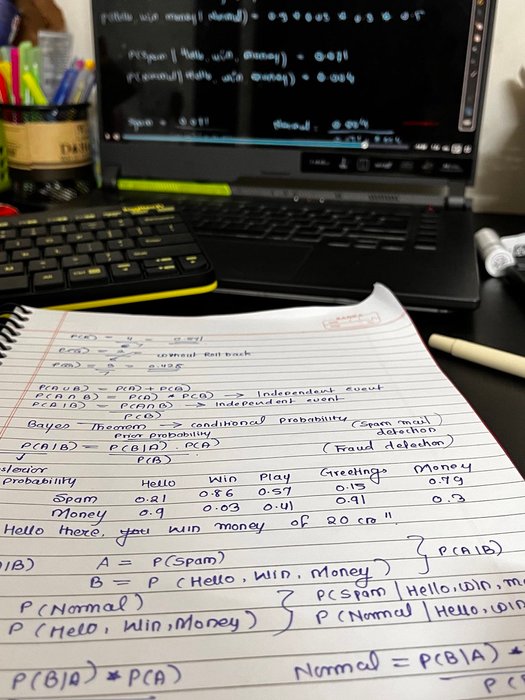 P(Spam | Hello, win, money) = 0.011
P(normal | Hello, win money) = 0.004
Spam = 0.011
Normal =
without Roll back
P(A∪B) = P(A) + P(B)
P(A∩B) = P(A) * P(B) → Independent event
P(A|B) = P(A∩B) → Independent event
P(B)
Bayes Theorem → conditional Probability (Spam mail
detection
Prior probability
P(A|B) = P(B|A) . P(A)
P(B)
(Fraud detection)
Probability Hello Win Play Greetings Money
Spam 0.21 0.86 0.57 0.15 0.79
Money 0.9 0.03 0.41 0.91 0.3
Hello there, you win money of 20 cro".
A = P(Spam)
B = P (Hello, Win, Money)
} P(A|B)
P(Normal)
P (Helo, Win, Money)
} P(Spam | Hello, Win, m
P(Normal | Hello, Win
P(B|A) * P(A)
Normal = P(B|A) *